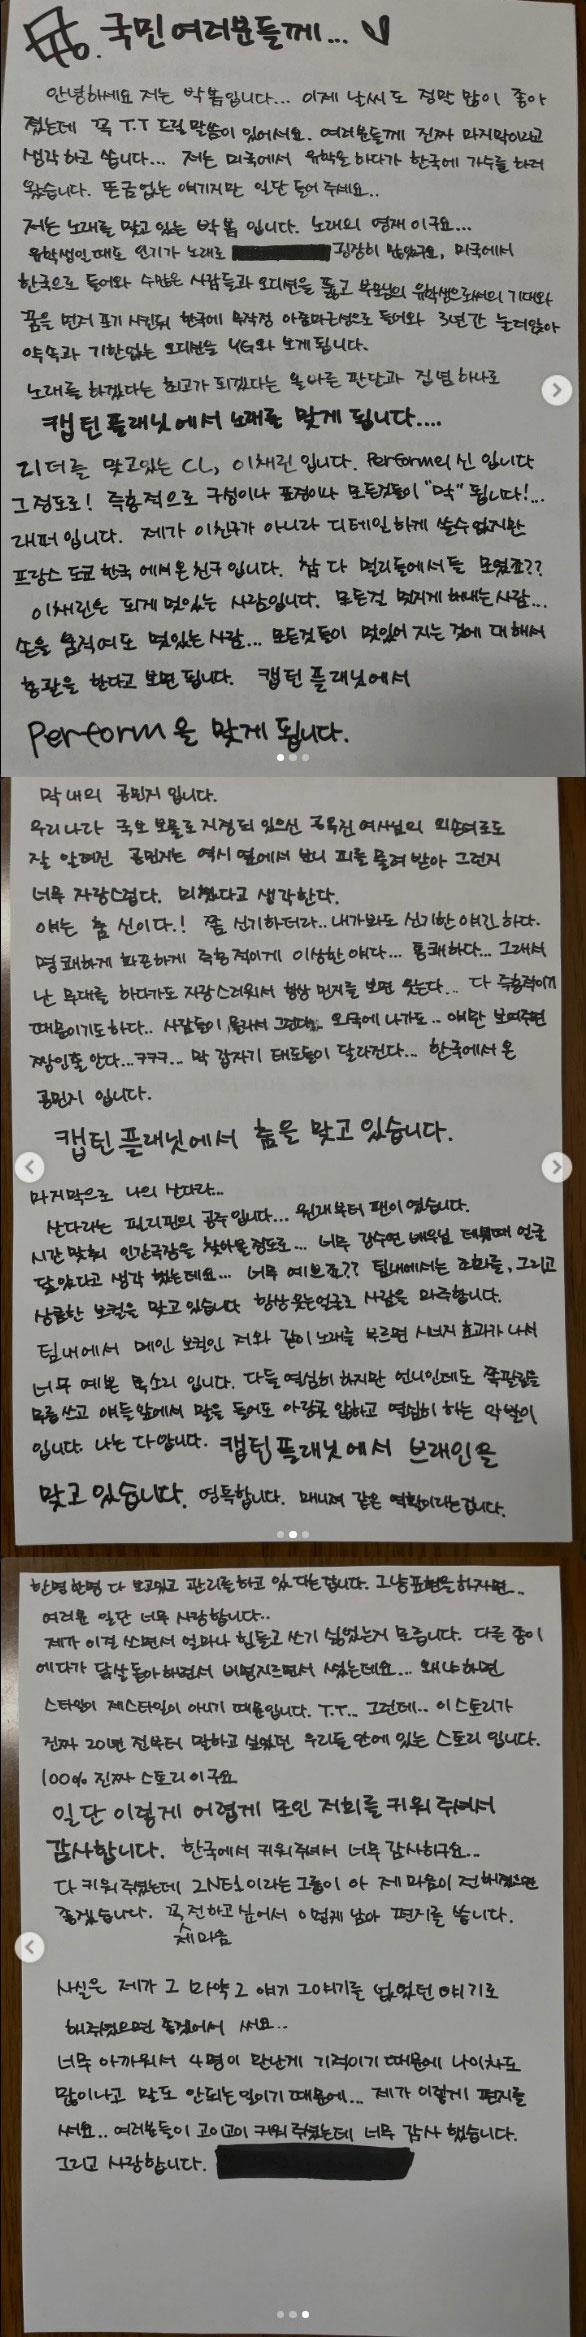 국민여러분들께...
안녕하세요 저는 박봄입니다... 이제 날씨도 정말 많이 좋아
졌는데 꼭 T.T 드릴 말씀이 있어서요. 여러분들께 진짜 마지막이라고
생각하고 씁니다... 저는 미국에서 유학을 하다가 한국에 가수를 하러
왔습니다. 뜬금없는 얘기지만 일단 들어 주세요..
저는 노래를 맞고 있는 박봄 입니다. 노래의 영재이구요...
유학생인 때도 인기가 노래로 굉장히 많았구요, 미국에서
한국으로 들어와 수많은 사람들과 오디션을 뚫고 부모님의 유학생으로써의 기대와
꿈을 먼저 포기 시킨뒤 한국에 무작정 아줌마근성으로 들어와 3년간 눌러앉아
약속과 기한없는 오디션을 YG와 보게 됩니다.
노래를 하겠다는 최고가 되겠다는 올바른 판단과 집념 하나로
캡틴플래닛에서 노래를 맞게 됩니다....
리더를 맞고있는 CL, 이채린입니다. Perform의 신 입니다
그정도로! 즉흥적으로 구성이나 표정이나 모든것들이 "딱" 됩니다!...
래퍼입니다. 제가 이친구가 아니라 디테일하게 쓸수없지만
프랑스 도쿄 한국 에서 온 친구입니다. 참 다 멀리들에서들 모였죠??
이채린은 되게 멋있는 사람입니다. 모든걸 멋지게 해내는 사람...
손을 움직여도 멋있는 사람... 모든것들이 멋있어 지는 것에 대해서
총괄을 한다고 보면 됩니다. 캡틴플래닛에서
Perform을 맞게 됩니다.
막내의 공민지 입니다.
우리나라 국보 보물로 지정되 있으신 공옥진 여사님의 외손녀로도
잘 알려진 공민지는 역시 옆에서 보니 피를 물려 받아 그런지
너무 자랑스럽다. 미쳤다고 생각한다.
얘는 춤 신이다.! 쫌 신기하더라.. 내가봐도 신기한 얘긴 하다.
명쾌하게 화끈하게 즉흥적이게 이상한 얘다... 통쾌하다... 그래서
난 무대를 하다가도 자랑스러워서 항상 민지를 보면 웃는다... 다 즉흥적이기
때문이기도하다.. 사람들이 몰라서 그런다... 외국에 나가도.. 얘만 보여주면
짱인줄 안다...ㅋㅋㅋ... 막 갑자기 태도들이 달라진다... 한국에서 온
공민지 입니다.
캡틴플래닛에서 춤을 맞고 있습니다.
마지막으로 나의 산다라...
산다라는 필리핀의 공주입니다... 원래부터 팬이였습니다.
시간 맞춰 인간극장을 찾아볼 정도로... 너무 강수연 배우님 데뷔때 얼굴
닮았다고 생각 했는데요... 너무 예쁘죠?? 팀내에서는 조화를, 그리고
상큼한 보컬을 맞고 있습니다 항상 웃는얼굴로 사람을 마주합니다.
팀내에서 메인 보컬인 저와 같이 노래를 부르면 시너지 효과가 나서
너무 예쁜 목소리 입니다. 다들 열심히 하지만 언니인데도 쪽팔림을
무릅쓰고 얘들앞에서 말을 들어도 아랑곳 않하고 열심히 하는 악발이
입니다. 나는 다 압니다. 캡틴플래닛에서 브래인을
맞고 있습니다. 영특합니다. 매니져 같은 역할이라는겁니다.
한명한명 다 보고있고 관리를 하고 있다는 겁니다. 그냥표현을하자면...
여러분 일단 너무 사랑합니다..
제가 이걸 쓰면서 얼마나 힘들고 쓰기 싫었는지 모릅니다. 다른 종이
에다가 닭살돋아 하면서 비명지르면서 썼는데요... 왜냐하면
스타일이 제스타일이 아니기 때문입니다. T.T... 그런데.. 이스토리가
진짜 20년 전부터 말하고 싶었던 우리들 안에 있는 스토리 입니다.
100% 진짜 스토리이구요
일단 이렇게 어렵게 모인 저희를 키워 주셔서
감사합니다. 한국에서 키워주셔서 너무 감사하구요...
다 키워주셨는데 2NE1이라는 그룹이 아 제 마음이 전해졌으면
좋겠습니다. 꼭 전하고 싶어서 이렇게 남아 편지를 씁니다.
제마음
사실은 제가 그 마약 그 얘기 그이야기를 없었던 얘기로
해주셨으면 좋겠어서 써요...
너무 아까워서 4명이 만난게 기적이기 때문에 나이차도
많이나고 말도 안되는 일이기 때문에... 제가 이렇게 편지를
써요.. 여러분들이 고이고이 키워 주셨는데 너무 감사 했습니다.
그리고 사랑합니다.